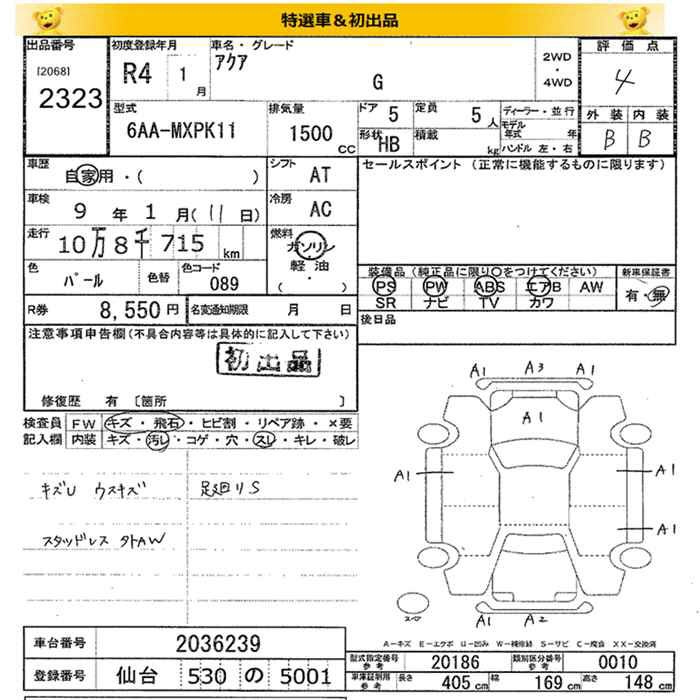 特選車&初出品
出品番号 初度登録年月 車名・グレード 評価点
[2068] R4 1 月 アクア 2WD・4WD 4
2323 G 外装 内装
型式 排気量 ドア 5 定員 5人 ディーラー・並行 B B
6AA-MXPK11 1500 CC 形状 HB 積載 kg モデル年式 年 ハンドル 左・右
車歴 自家用・( ) シフト AT セールスポイント (正常に機能するものに限ります)
車検 9年 1月(11日) 冷房 AC
走行 10万8千715 km 燃料 ガソリン 軽油 ( )
色 パール 色替 色コード 089 装備品 (純正品に限り○をつけてください) 新車保証書
PS PW ABS エアB AW 有・無
SR ナビ TV カワ
R券 8,550円 名変通知期限 月 日 後日品
注意事項申告欄(不具合内容等は具体的に記入して下さい)
初出品
修復歴 有 〔箇所 〕
検査員記入欄 FW キズ・飛石・ヒビ割・リペア跡・×要
内装 キズ・汚レ・コゲ・穴・スレ・キレ・破レ
A1 A3 A1
A1
A1 A1
A1
A1 A2
キズU ウスキズ 足廻りS
スタッドレス 外AW
スペア
A-キズ E-エクボ U-凹み W-補修跡 S-サビ C-腐食 XX-交換済
車台番号 2036239
登録番号 仙台 530 の 5001
型式指定番号参考 20186 類別区分番号参考 0010
車庫証明用参考 長さ 405cm 幅 169cm 高さ 148cm